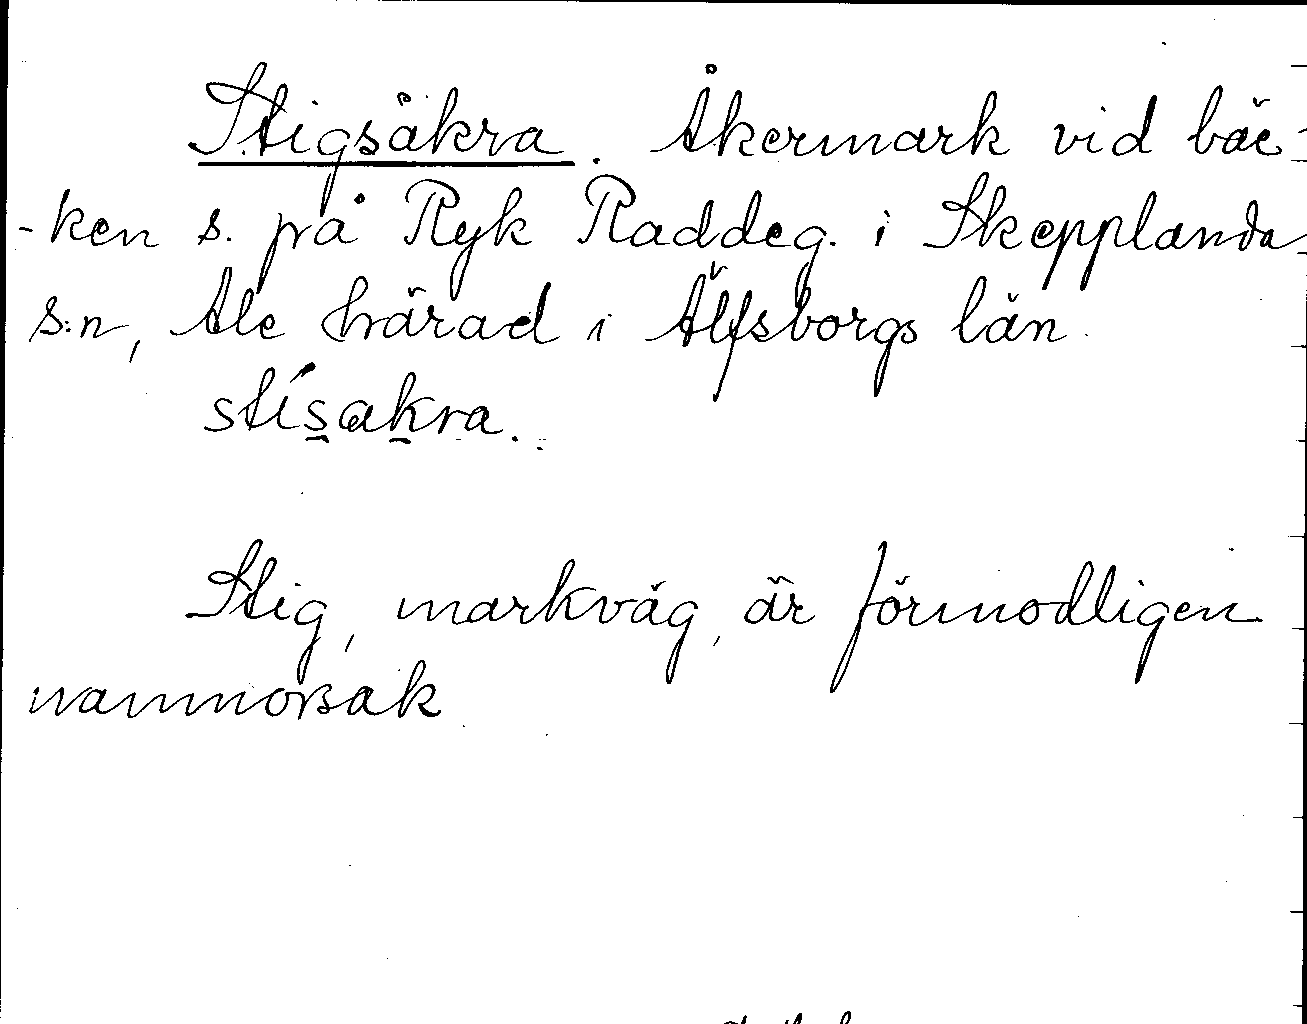 Stigsåkra. Åkermark vid bäc-
-ken s. på Ryk Raddeg. i Skepplanda
s:n, Ale härad i Älfsborgs län.
stísakra.
Stig, markväg, är förmodligen
namnorsak